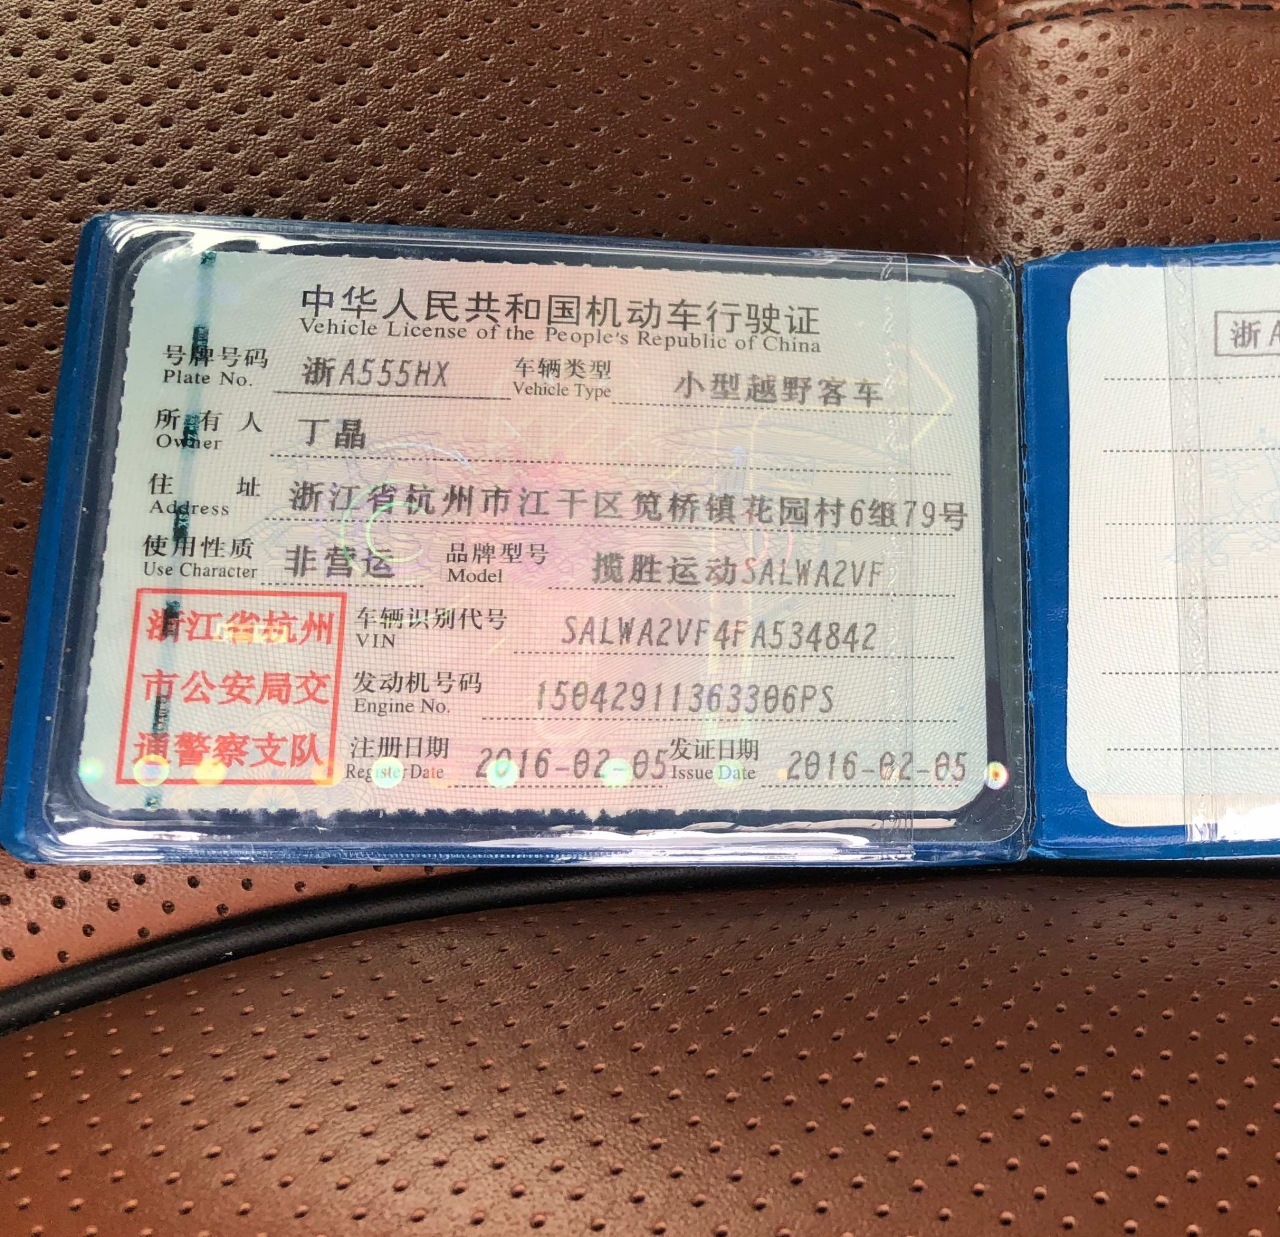 中华人民共和国机动车行驶证
Vehicle License of the People's Republic of China
号牌号码 浙A555HX 车辆类型 小型越野客车
Plate No. Vehicle Type
所有人 丁晶
Owner
住址 浙江省杭州市江干区笕桥镇花园村6组79号
Address
使用性质 非营运 品牌型号 揽胜运动SALWA2VF
Use Character Model
浙江省杭州
市公安局交
通警察支队
车辆识别代号 SALWA2VF4FA534842
VIN
发动机号码 15042911363306PS
Engine No.
注册日期 2016-02-05 发证日期 2016-02-05
Register Date Issue Date
浙A